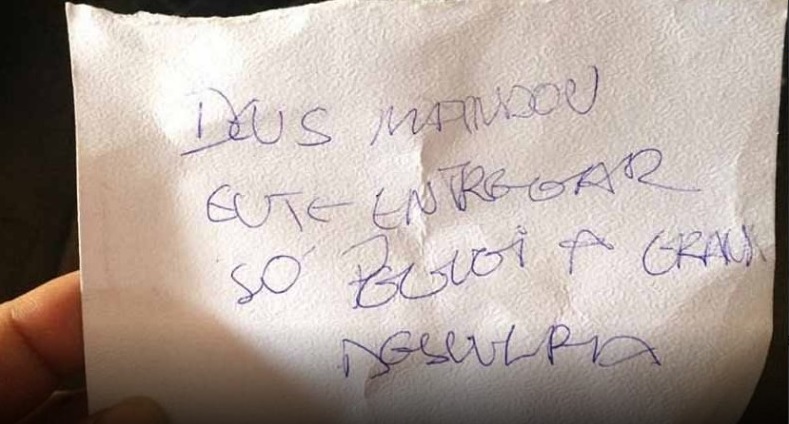 DEUS MANDOU
EU TE ENTREGAR
SÓ PEGUEI A GRANA
DESCULPA